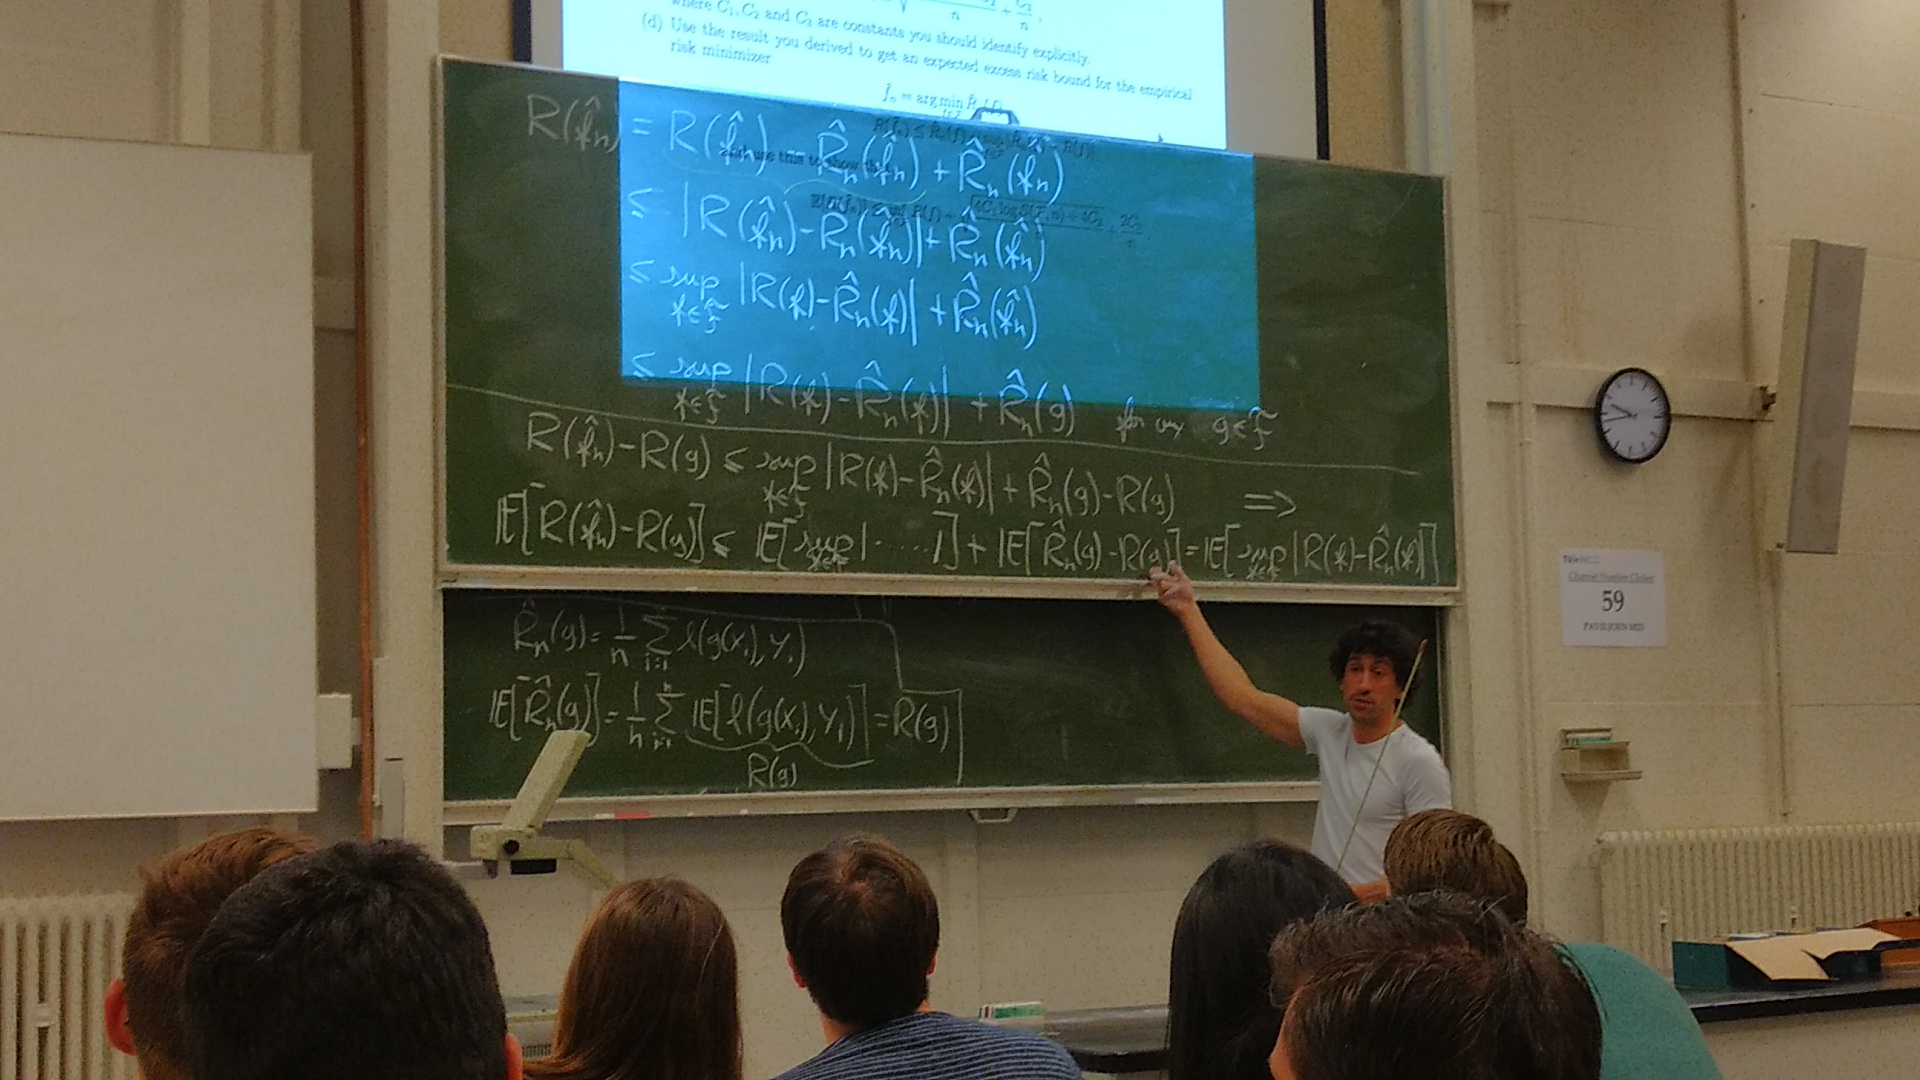 where C₁, C₂ and C₃ are constants you should identify explicitly.
(d) Use the result you derived to get an expected excess risk bound for the empirical
risk minimizer
f̂ₙ = arg min R̂ₙ(f)
and use this to show that
R(f̂ₙ) = R(f̂ₙ) - R̂ₙ(f̂ₙ) + R̂ₙ(f̂ₙ)
≤ |R(f̂ₙ) - R̂ₙ(f̂ₙ)| + R̂ₙ(f̂ₙ)
≤ sup_{f∈F} |R(f) - R̂ₙ(f)| + R̂ₙ(f̂ₙ)
≤ sup_{f∈F} |R(f) - R̂ₙ(f)| + R̂ₙ(g) for any g∈F
R(f̂ₙ) - R(g) ≤ sup_{f∈F} |R(f) - R̂ₙ(f)| + R̂ₙ(g) - R(g) ⟹
𝔼[R(f̂ₙ) - R(g)] ≤ 𝔼[sup_{f∈F} |·····|] + 𝔼[R̂ₙ(g) - R(g)] = 𝔼[sup_{f∈F} |R(f) - R̂ₙ(f)|]
R̂ₙ(g) = 1/n Σ_{i=1}^n ℓ(g(Xᵢ), Yᵢ)
𝔼[R̂ₙ(g)] = 1/n Σ_{i=1}^n 𝔼[ℓ(g(Xᵢ), Yᵢ)] = R(g)
R(g)
59